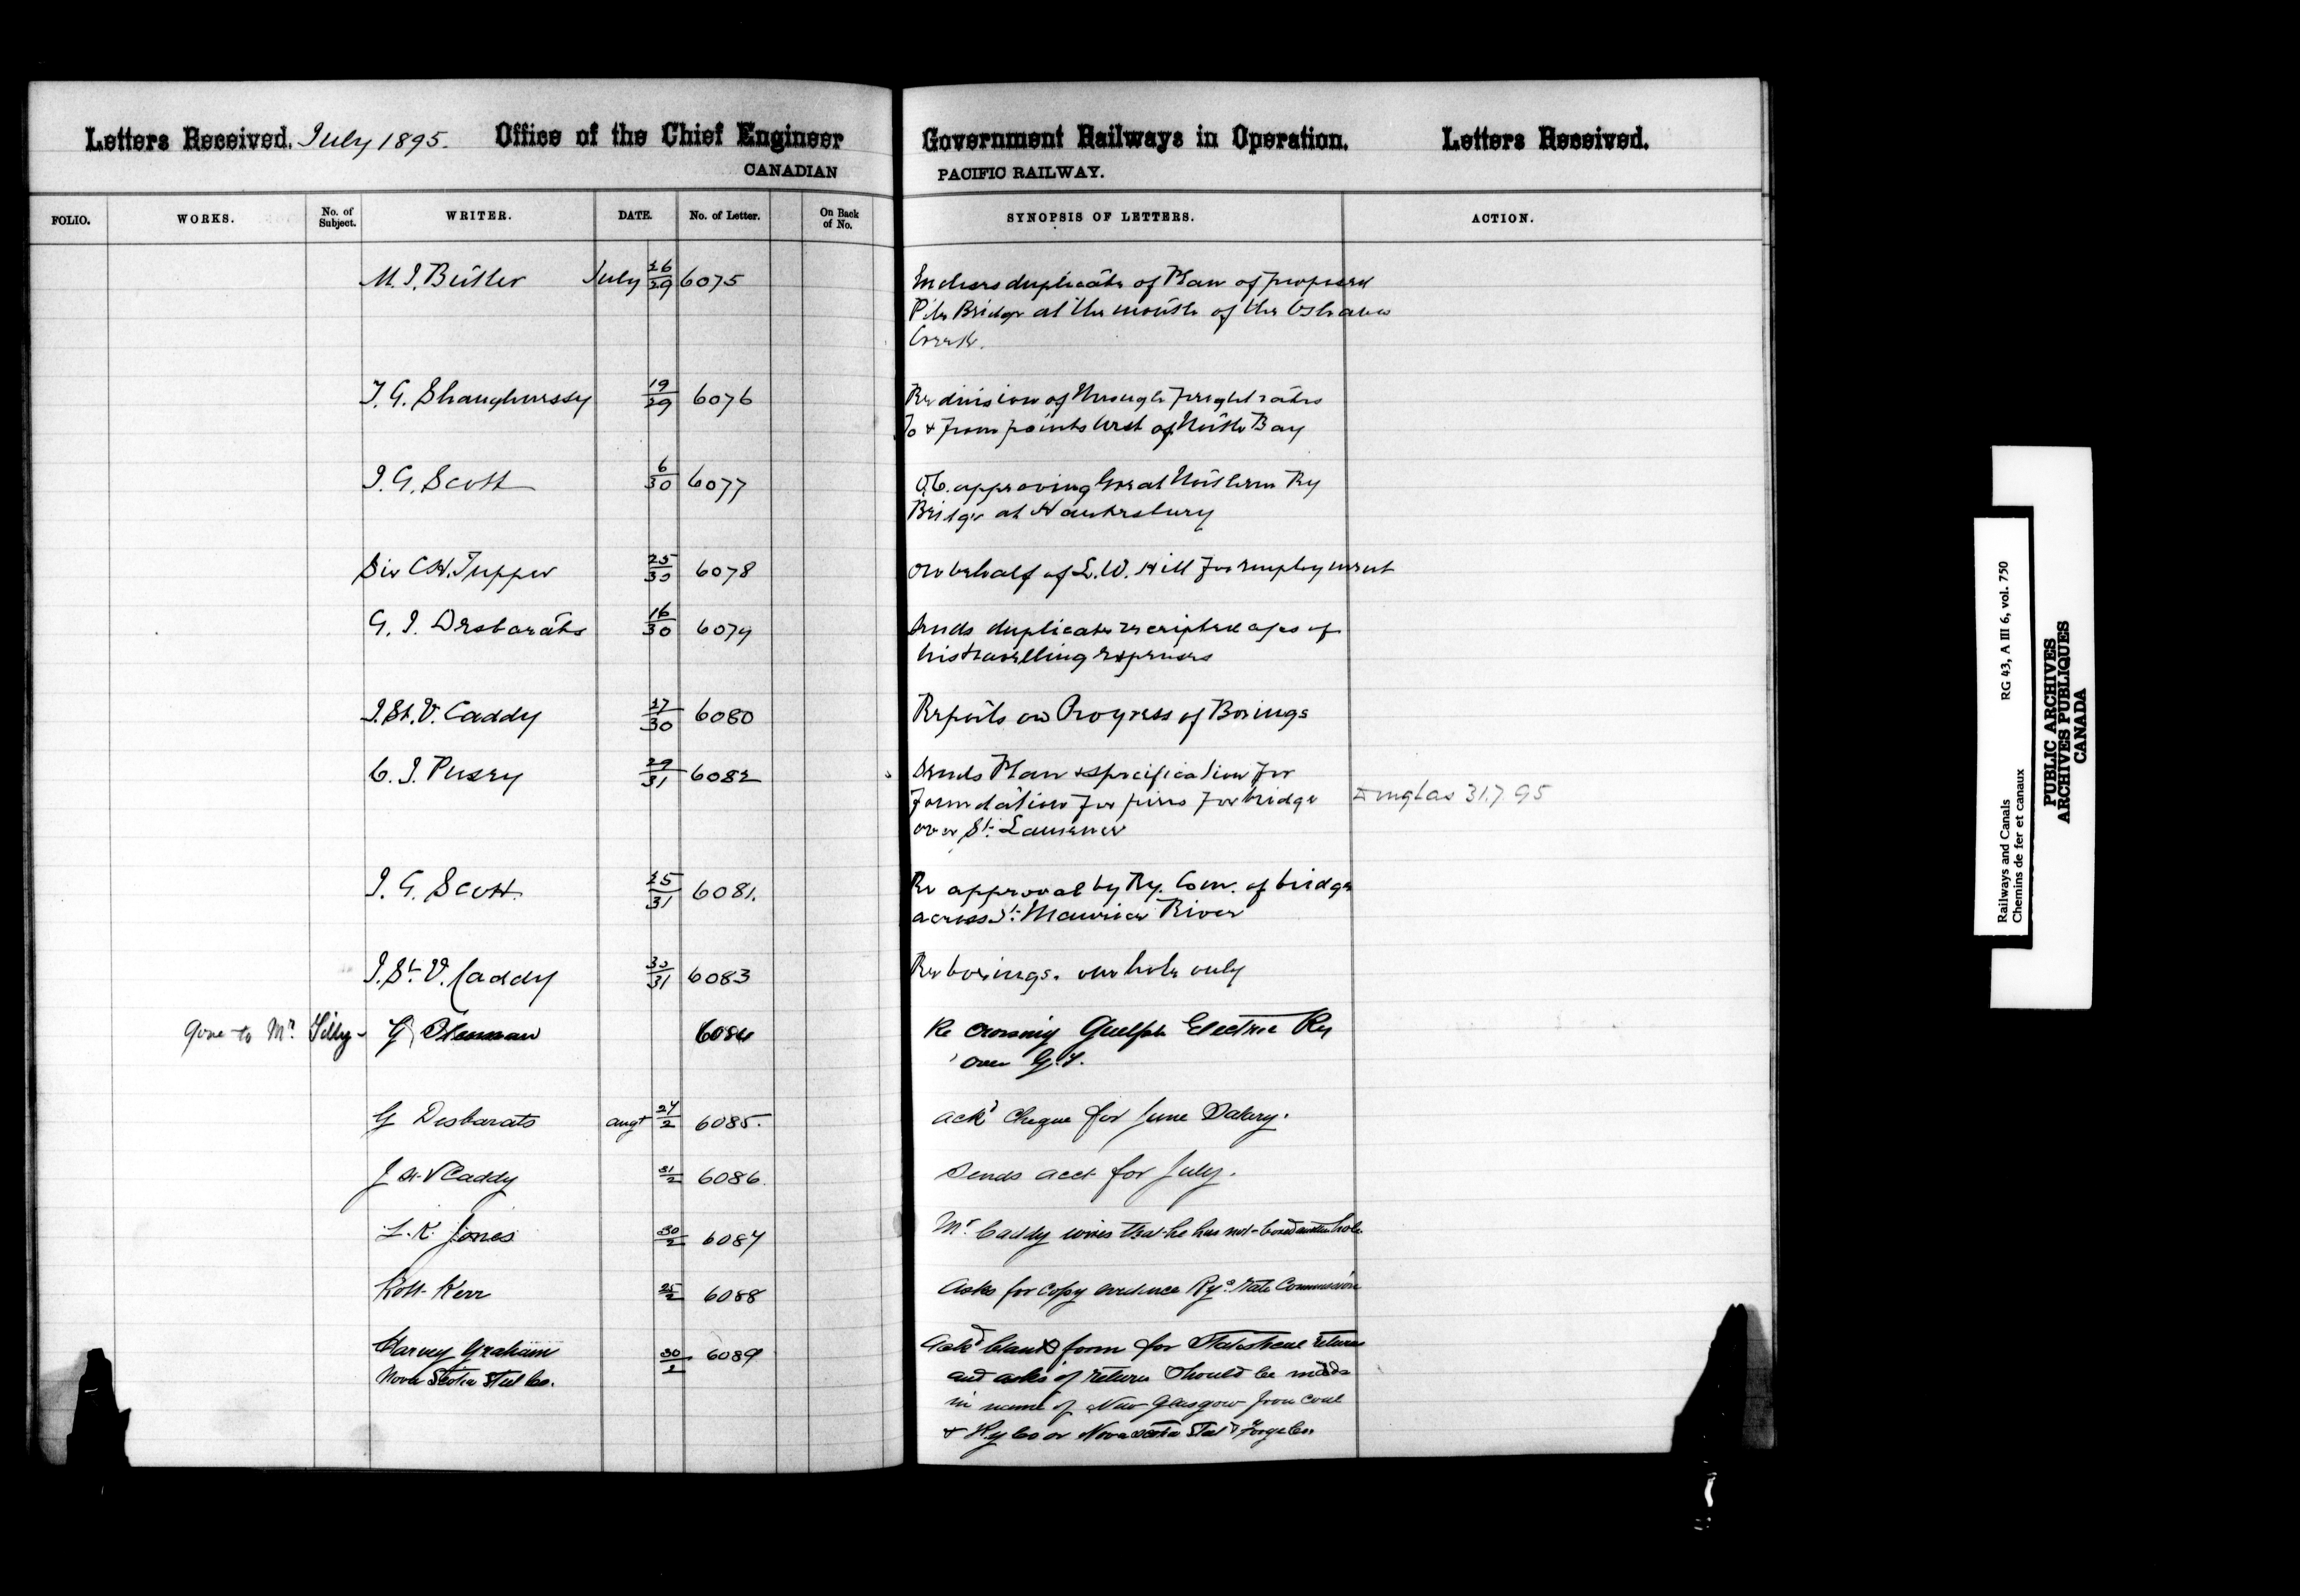 Letters Received. July 1895. Office of the Chief Engineer Government Railways in Operation. Letters Received.
CANADIAN PACIFIC RAILWAY.
FOLIO. WORKS. No. of Subject. WRITER. DATE. No. of Letter. On Back of No. SYNOPSIS OF LETTERS. ACTION.
M. J. Butler July 26/29 6075 Encloses duplicate of Plan of proposed
Pile Bridge at the mouth of the Oshawa
Creek.
T. G. Shaughnessy 19/29 6076 Re division of through freight rates
To & from points West of North Bay
J. G. Scott 6/30 6077 O.C. approving Great Northern Ry
Bridge at Hawkesbury
Sir C.H. Tupper 25/30 6078 On behalf of L. W. Hill for employment
G. J. Desbarats 16/30 6079 Sends duplicate receipted a/cs of
his travelling expenses
J. St. V. Caddy 27/30 6080 Reports on Progress of Borings
C. J. Pusey 29/31 6082 Sends Plan & specification for
foundation for piers for bridge Douglas 31.7.95
over St. Lawrence
J. G. Scott 25/31 6081. Re approval by Ry. Com. of bridge
across St. Maurice River
J. St. V. Caddy 30/31 6083 Re borings. one hole only
Gone to Mr. Tilly - G Sleeman 6084 Re crossing Guelph Electric Ry
over G.T.
G Desbarats augt 27/2 6085. ackd Cheque for June Salary.
J St V Caddy 31/2 6086. Sends acct for July.
L. K. Jones 30/2 6087 Mr. Caddy wires that he has not bored another hole
Robt Kerr 25/2 6088 Asks for copy evidence Rys. rate Commission
Harvey Graham 30/2 6089 Ackd blank form for Statistical returns
Nova Scotia Steel Co. and asks if return should be made
in name of New Glasgow Iron Coal
& Ry Co or Nova Scotia Steel & Forge Co.
Railways and Canals RG 43, A III 6, vol. 750
Chemins de fer et canaux
PUBLIC ARCHIVES
ARCHIVES PUBLIQUES
CANADA